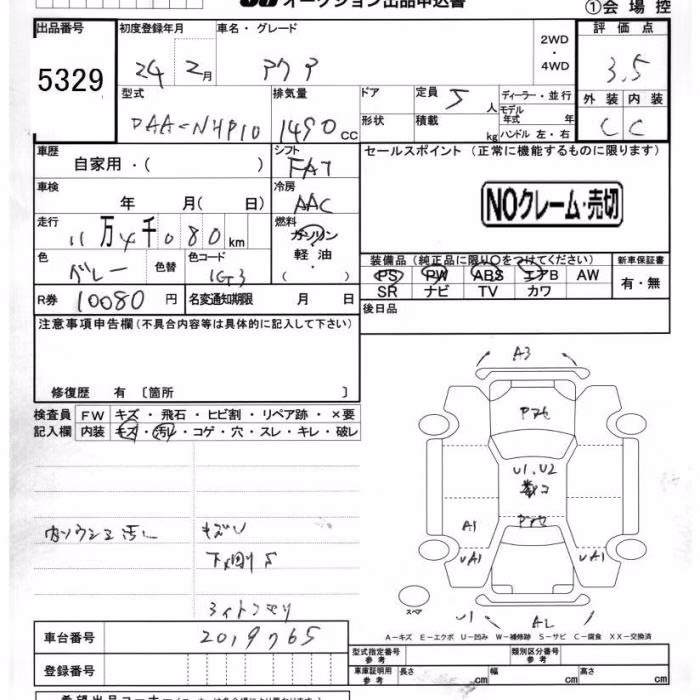 オークション出品申込書
①会場控
出品番号 5329
初度登録年月 24年 2月
車名・グレード アクア
2WD・4WD
評価点 3.5
型式 DAA-NHP10
排気量 1490cc
ドア
形状
定員 5人
積載 kg
ディーラー・並行
モデル年式 年
ハンドル 左・右
外装 C 内装 C
車歴 自家用・( )
シフト FAT
セールスポイント (正常に機能するものに限ります)
車検 年 月( 日)
冷房 AAC
NOクレーム・売切
走行 11万4千080km
燃料 ガソリン 軽油・( )
色 グレー 色替
色コード 1G3
装備品(純正品に限り○をつけてください)
新車保証書
PS PW ABS エアB AW
有・無
SR ナビ TV カワ
R券 10080円
名変通知期限 月 日
後日品
注意事項申告欄(不具合内容等は具体的に記入して下さい)
修復歴 有 〔箇所 〕
検査員記入欄
FW キズ・飛石・ヒビ割・リペア跡・×要
内装 キズ・汚レ・コゲ・穴・スレ・キレ・破レ
A3
U1.U2
A1
UA1
UA1
キズU
スペア
U1
A-キズ E-エクボ U-凹み W-補修跡 S-サビ C-腐食 XX-交換済
車台番号 2019765
登録番号
型式指定番号 参考
類別区分番号 参考
車庫証明用 参考 長さ cm 幅 cm 高さ cm